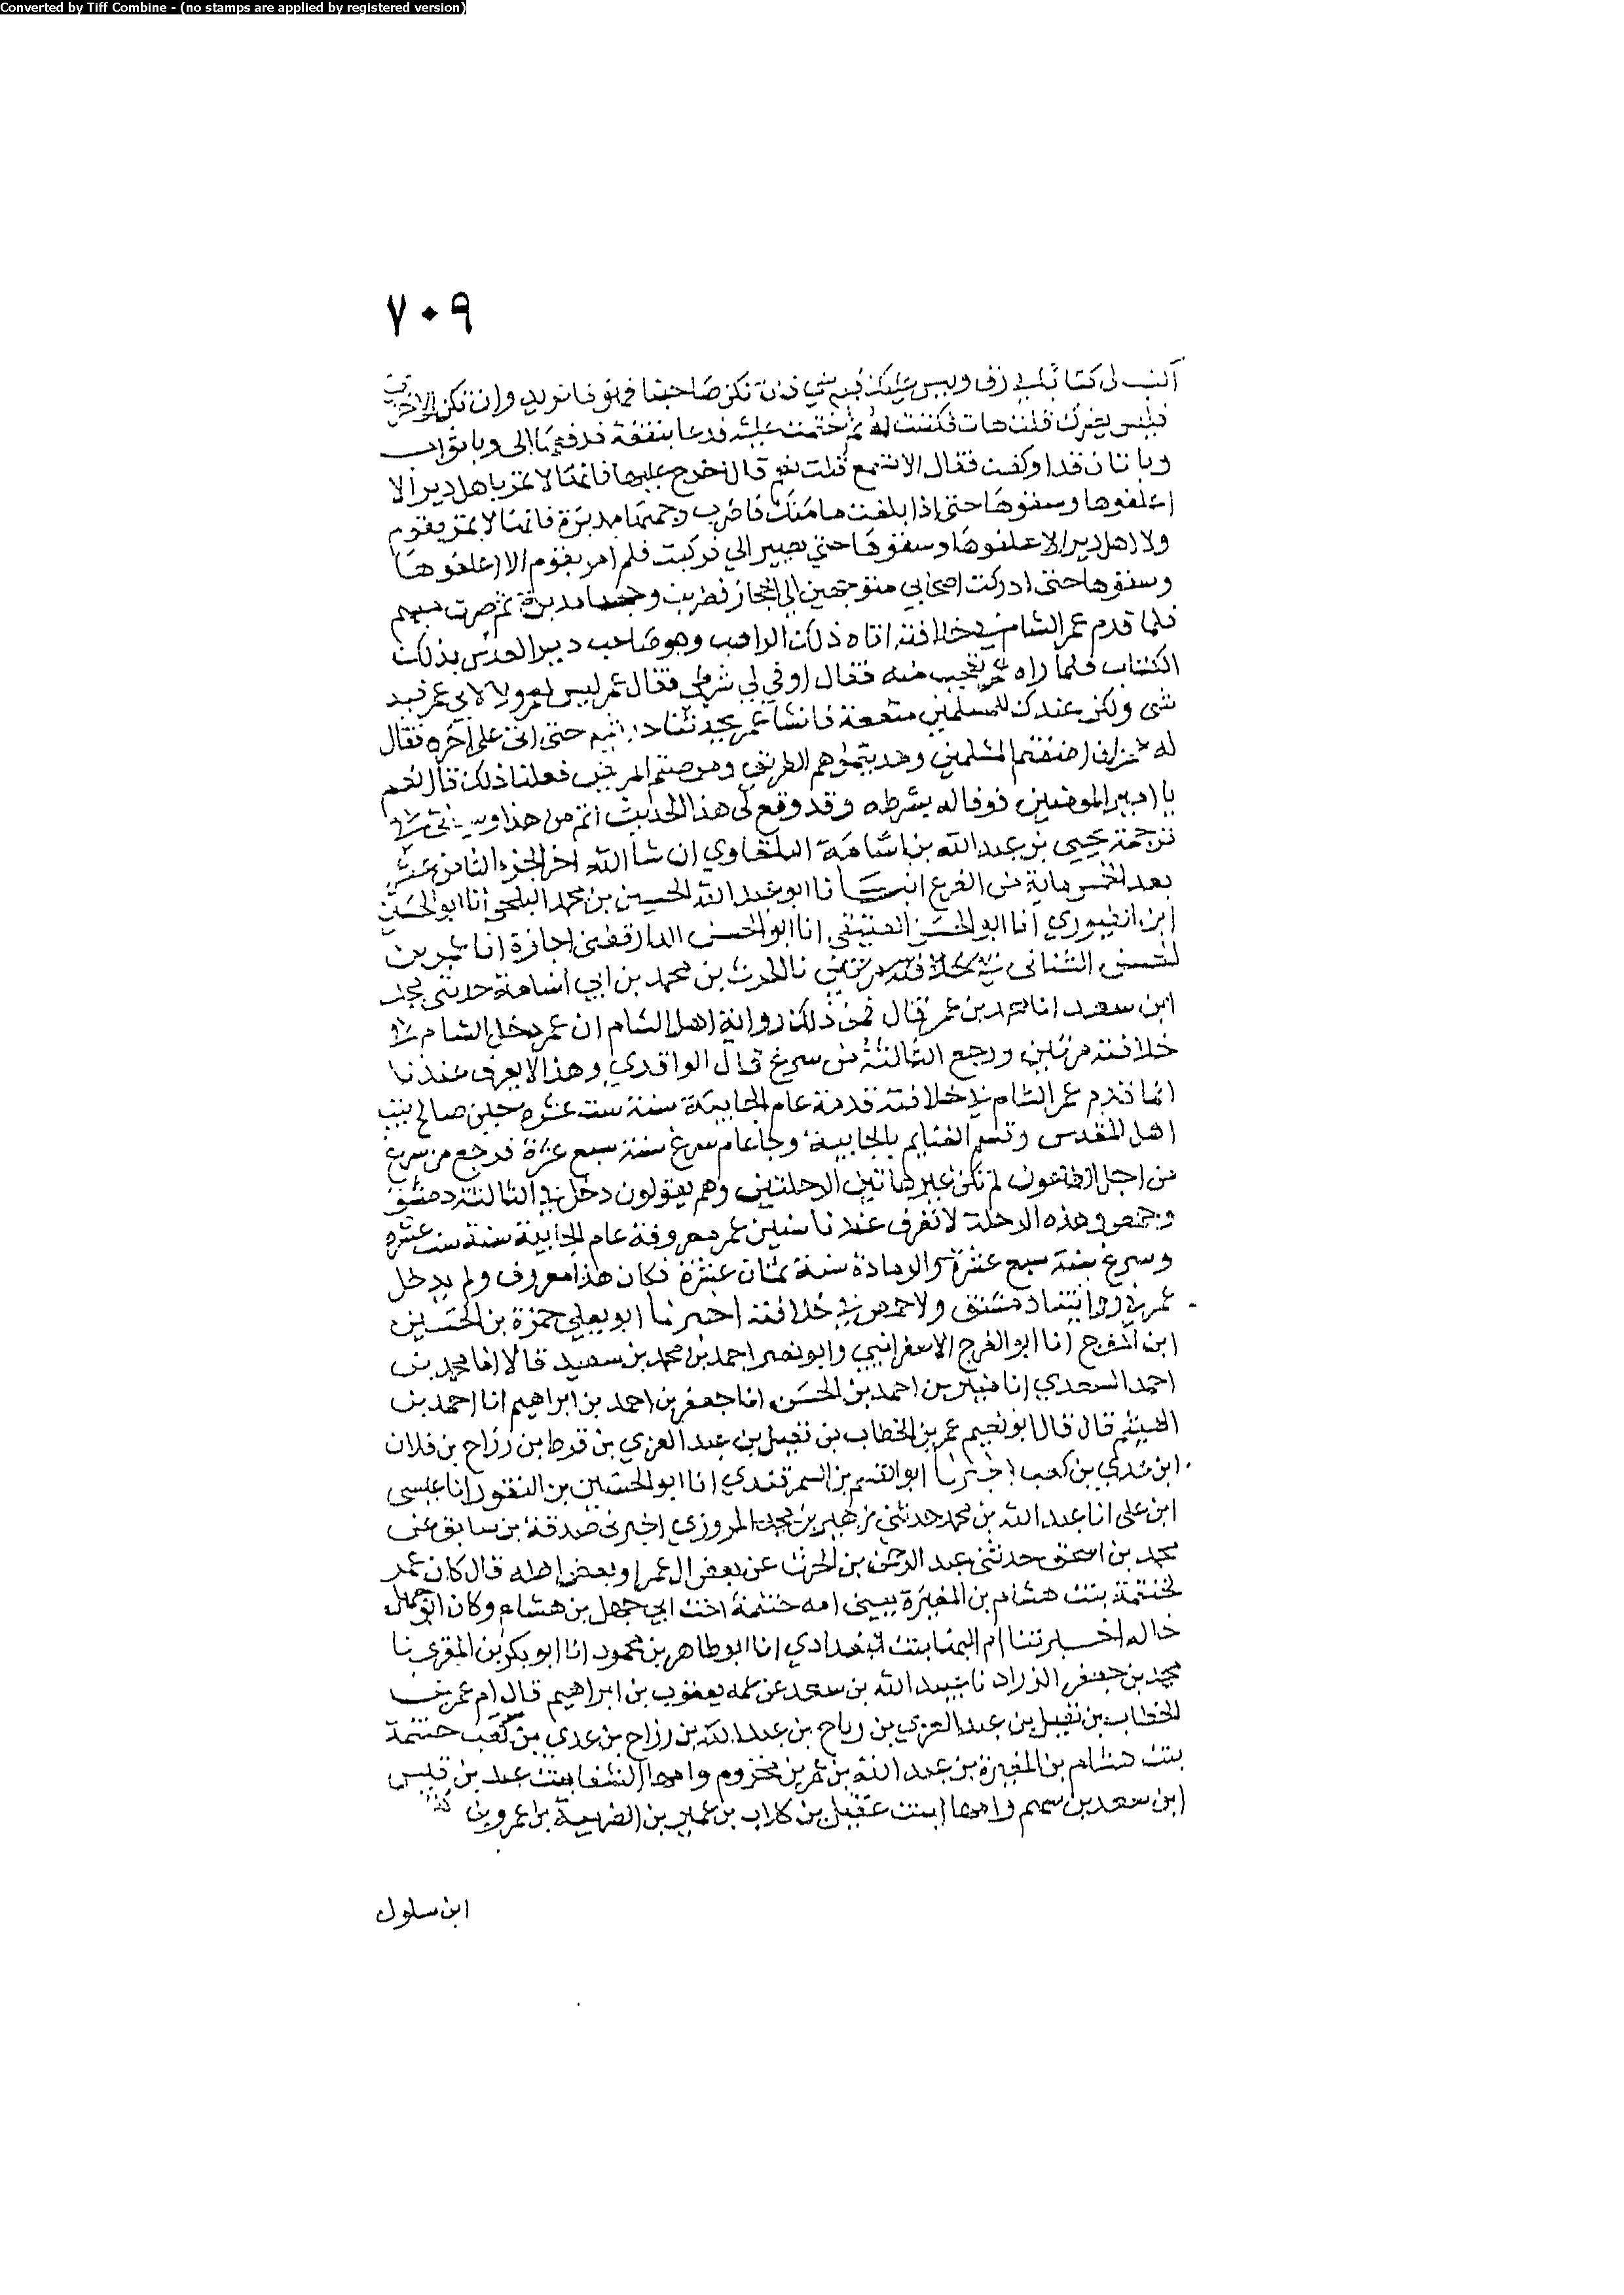 Converted by Tiff Combine - (no stamps are applied by registered version)
٧٠٩
اكتب لي كتابا في رق وليس عليك فيه شي فان تكن صاحبنا فهو ما نريد وان تكن الاخرى
فليس يضرك قلت هات فكتبت له ثم ختمت عليه فدعا بنفقة فدفعها الي وباثواب
وباتان قد اوكفت فقال الا تسمع قلت نعم قال اخرج عليها فانها لا تمر باهل دير الا
اعلفوها وسقوها حتى اذا بلغت مامنك فاضرب وجهها مدبرة فانها لا تمر بقوم
ولا اهل دير الا علفوها وسقوها حتى تصير الي فركبت فلم امر بقوم الا اعلفوها
وسقوها حتى ادركت اصحابي متوجهين الى الحجاز فضربت وجهها مدبرة ثم صرت معهم
فلما قدم عمر الشام في خلافته اتاه ذلك الراهب وهو صاحب دير العدس بذلك
الكتاب فلما راه عمر تعجب منه فقال اوفي لي شرطي فقال عمر ليس لعمر ولا لابي عمر فيه
شي ولكن عندك للمسلمين منفعة فانشا عمر يحدثنا حديثه حتى اتى على اخره فقال
له عمر ان اضفتم المسلمين وهديتموهم الطريق ومرضتم المريض فعلنا ذلك قال نعم
يا امير المومنين فوفا له بشرطه وقد وقع لي هذا الحديث اتم من هذا وسياتي في
ترجمة يحيى بن عبد الله بن اسامة البلقاوي ان شا الله اخر الجزء الثامن عشر
بعد الخمس ماية من الفرع انبانا ابو عبد الله الحسين بن محمد البلخي انا ابو الحسين
ابن الطيوري انا ابو الحسن العتيقي انا ابو الحسن الدارقطني اجازة انا عمر بن
الحسن الشيباني نا الحرث بن محمد بن ابي اسامة حدثني محمد
ابن سعد انا محمد بن عمر قال فمن ذلك رواية اهل الشام ان عمر دخل الشام في
خلافته مرتين ورجع الثالثة من سرغ قال الواقدي وهذا لا يعرف عندنا
انما قدم عمر الشام في خلافته قدمة عام الجابية سنة ست عشره حين صالح بيت
اهل المقدس وقسم الغنايم بالجابية وجا عام سرغ سنة سبع عشرة فرجع من سرغ
من اجل الطاعون لم تكن غير هاتين الرحلتين وهم يقولون دخل في الثالثة دمشق
وحمص وهذه الرحلة لا تعرف عندنا سنين عمر معروفة عام الجابية سنة ست عشره
وسرغ سنة سبع عشرة والرمادة سنة ثمان عشرة فكان هذا معروف ولم يدخل
عمر في روايتنا دمشق ولا حمص في خلافته اخبرنا ابو يعلي حمزة بن الحسين
ابن المفرج انا ابو الفرج الاسفرانيي وابو نصر احمد بن محمد بن سعيد قالا انا محمد بن
احمد السعدي انا منير بن احمد بن الحسن انا جعفر بن احمد بن ابراهيم انا احمد بن
الهيثم قال قال ابو نعيم عمر بن الخطاب بن نفيل بن عبد العزي بن قرط بن رزاح بن فلان
ابن عدي بن كعب اخبرنا ابو القسم بن السمرقندي انا ابو الحسين بن النقور انا عيسى
ابن على انا عبد الله بن محمد حدثني زهير بن محمد المروزي اخبرني صدقة بن سابق عن
محمد بن اسحق حدثني عبد الرحمن بن الحرث عن بعض ال عمر او بعض اهله قال كان عمر
لحنتمة بنت هشام بن المغيرة يعني امه حنتمة اخت ابي جهل بن هشام وكان ابو جهل
خاله اخبرتنا ام البها بنت البغدادي انا ابو طاهر بن محمود انا ابو بكر بن المقري نا
محمد بن جعفر الزراد نا عبيد الله بن سعد عن عمه يعقوب بن ابراهيم قال ام عمر بن
الخطاب بن نفيل بن عبد العزي بن رياح بن عبد الله بن رزاح بن عدي بن كعب حنتمة
بنت هشام بن المغيرة بن عبد الله بن عمر بن مخزوم وامها الشفا بنت عبد بن قيس
ابن سعد بن سهم وامها ابنت عقيل بن كلاب بن عمير بن الضريبة بن عمرو بن
ابن سلول